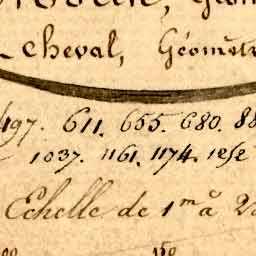 Cheval, Géomètr
497. 611. 655. 680. 88
1037. 1161. 1174.
Echelle de 1m à 2
150